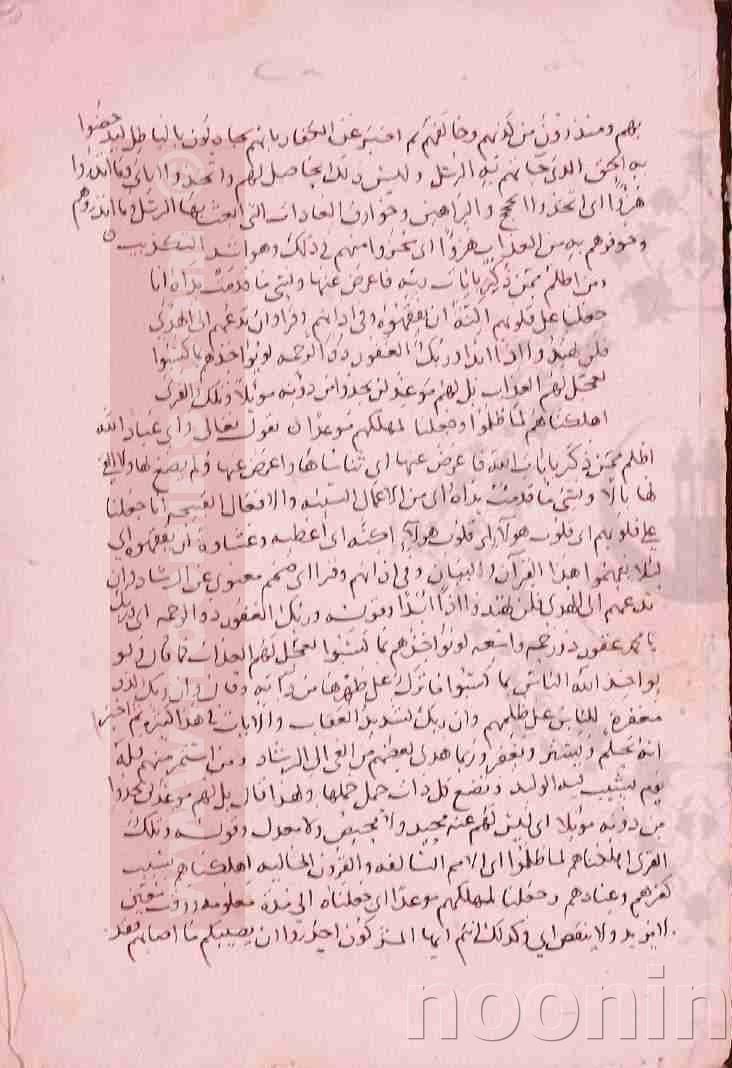 بهم ومنذرون من كذبهم وخالفهم ثم اخبر عن الكفار بانهم يجادلون بالباطل ليدحضوا
به الحق الذي جاءتهم به الرسل وليس ذلك بحاصل لهم واتخذوا اياتي وما انذروا
هزوا اي اتخذوا الحجج والبراهين وخوارق العادات التي بعث بها الرسل وما انذروهم
وخوفوهم به من العذاب هزوا اي سخروا منهم في ذلك وهو اشد التكذيب
ومن اظلم ممن ذكر بايات ربه فاعرض عنها ونسي ما قدمت يداه انا
جعلنا على قلوبهم اكنة ان يفقهوه وفي اذانهم وقرا وان تدعهم الى الهدى
فلن يهتدوا اذا ابدا وربك الغفور ذو الرحمة لو يؤاخذهم بما كسبوا
لعجل لهم العذاب بل لهم موعد لن يجدوا من دونه موئلا وتلك القرى
اهلكناهم لما ظلموا وجعلنا لمهلكهم موعدا يقول تعالى واي عباد الله
اظلم ممن ذكر بايات الله فاعرض عنها اي تناساها واعرض عنها ولم يصغ لها ولا القى
لها بالا ونسي ما قدمت يداه اي من الاعمال السيئة والافعال القبيحة انا جعلنا
على قلوبهم اي قلوب هولاء اي قلوب هولاء اكنة اي اغطية وغشاوة ان يفقهوه اي
لئلا يفهموا هذا القرآن والبيان وفي اذانهم وقرا اي صمم معنوي عن الرشاد وان
تدعهم الى الهدى فلن يهتدوا اذا ابدا وقوله وربك الغفور ذو الرحمة اي ربك
يا محمد غفور ذو رحمة واسعة لو يؤاخذهم بما كسبوا لعجل لهم العذاب كما قال ولو
يواخذ الله الناس بما كسبوا ما ترك على ظهرها من دابة وقال وان ربك لذو
مغفرة للناس على ظلمهم وان ربك لشديد العقاب والايات في هذا كثيرة ثم اخبر
انه يحلم ويستر ويغفر وربما هدى بعضهم من الغي الى الرشاد ومن استمر منهم فله
يوم يشيب فيه الوليد وتضع كل ذات حمل حملها ولهذا قال بل لهم موعد لن يجدوا
من دونه موئلا اي ليس لهم عنه محيد ولا محيص ولا معدل وقوله وتلك
القرى اهلكناهم لما ظلموا اي الامم السالفة والقرون الخالية اهلكناهم بسبب
كفرهم وعنادهم وجعلنا لمهلكهم موعدا اي جعلناه الى مدة معلومة ووقت معين
لا يزيد ولا ينقص اي وكذلك انتم ايها المشركون احذروا ان يصيبكم ما اصابهم فقد
noonin